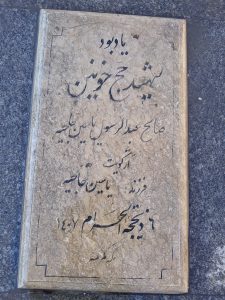 یادبود
شهید حج خونین
صالح عبدالرسول یاسین
از کویت
فرزند یاسین
۶ ذیحجه الحرام ۱۴۰۷